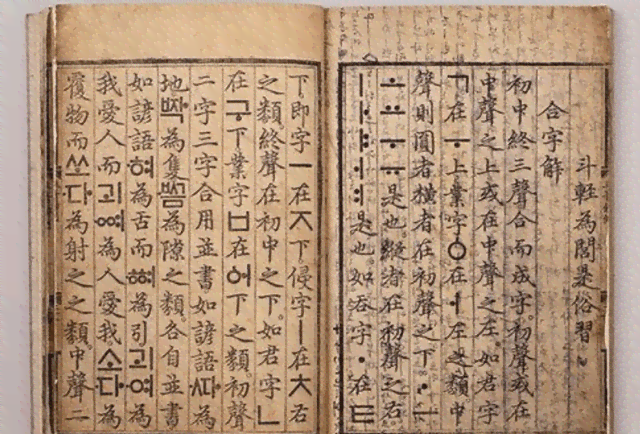 斗輕為閭是俗習
合字解
初中終三聲合而成字。初聲或在
中聲之上或在中聲之左。如君字
ㄱ在ㅜ上業字ㆁ在ㅓ左之類中
聲則圓者橫者在初聲之下。ㆍㅡ
ㅗㅛㅜㅠ是也縱者在初聲之右。
ㅣㅏㅑㅓㅕ是也。如呑字ㆍ在ㅌ
下即字ㅡ在ㅈ下侵字ㅣ在ㅊ右
之類。終聲在初中之下。如君字ㄴ
在구下業字ㅂ在ᅌᅥ下之類初聲
二字三字合用並書如諺語ᄯᅡ為
地ᄧᅡᆨ為隻ᄢᅳᆷ為隙之類。各自並書
如諺語혀為舌而ᅘᅧ為引괴여為
我愛人而괴ᅇᅧ為人愛我소다為
覆物而쏘다為射之之類。中聲二